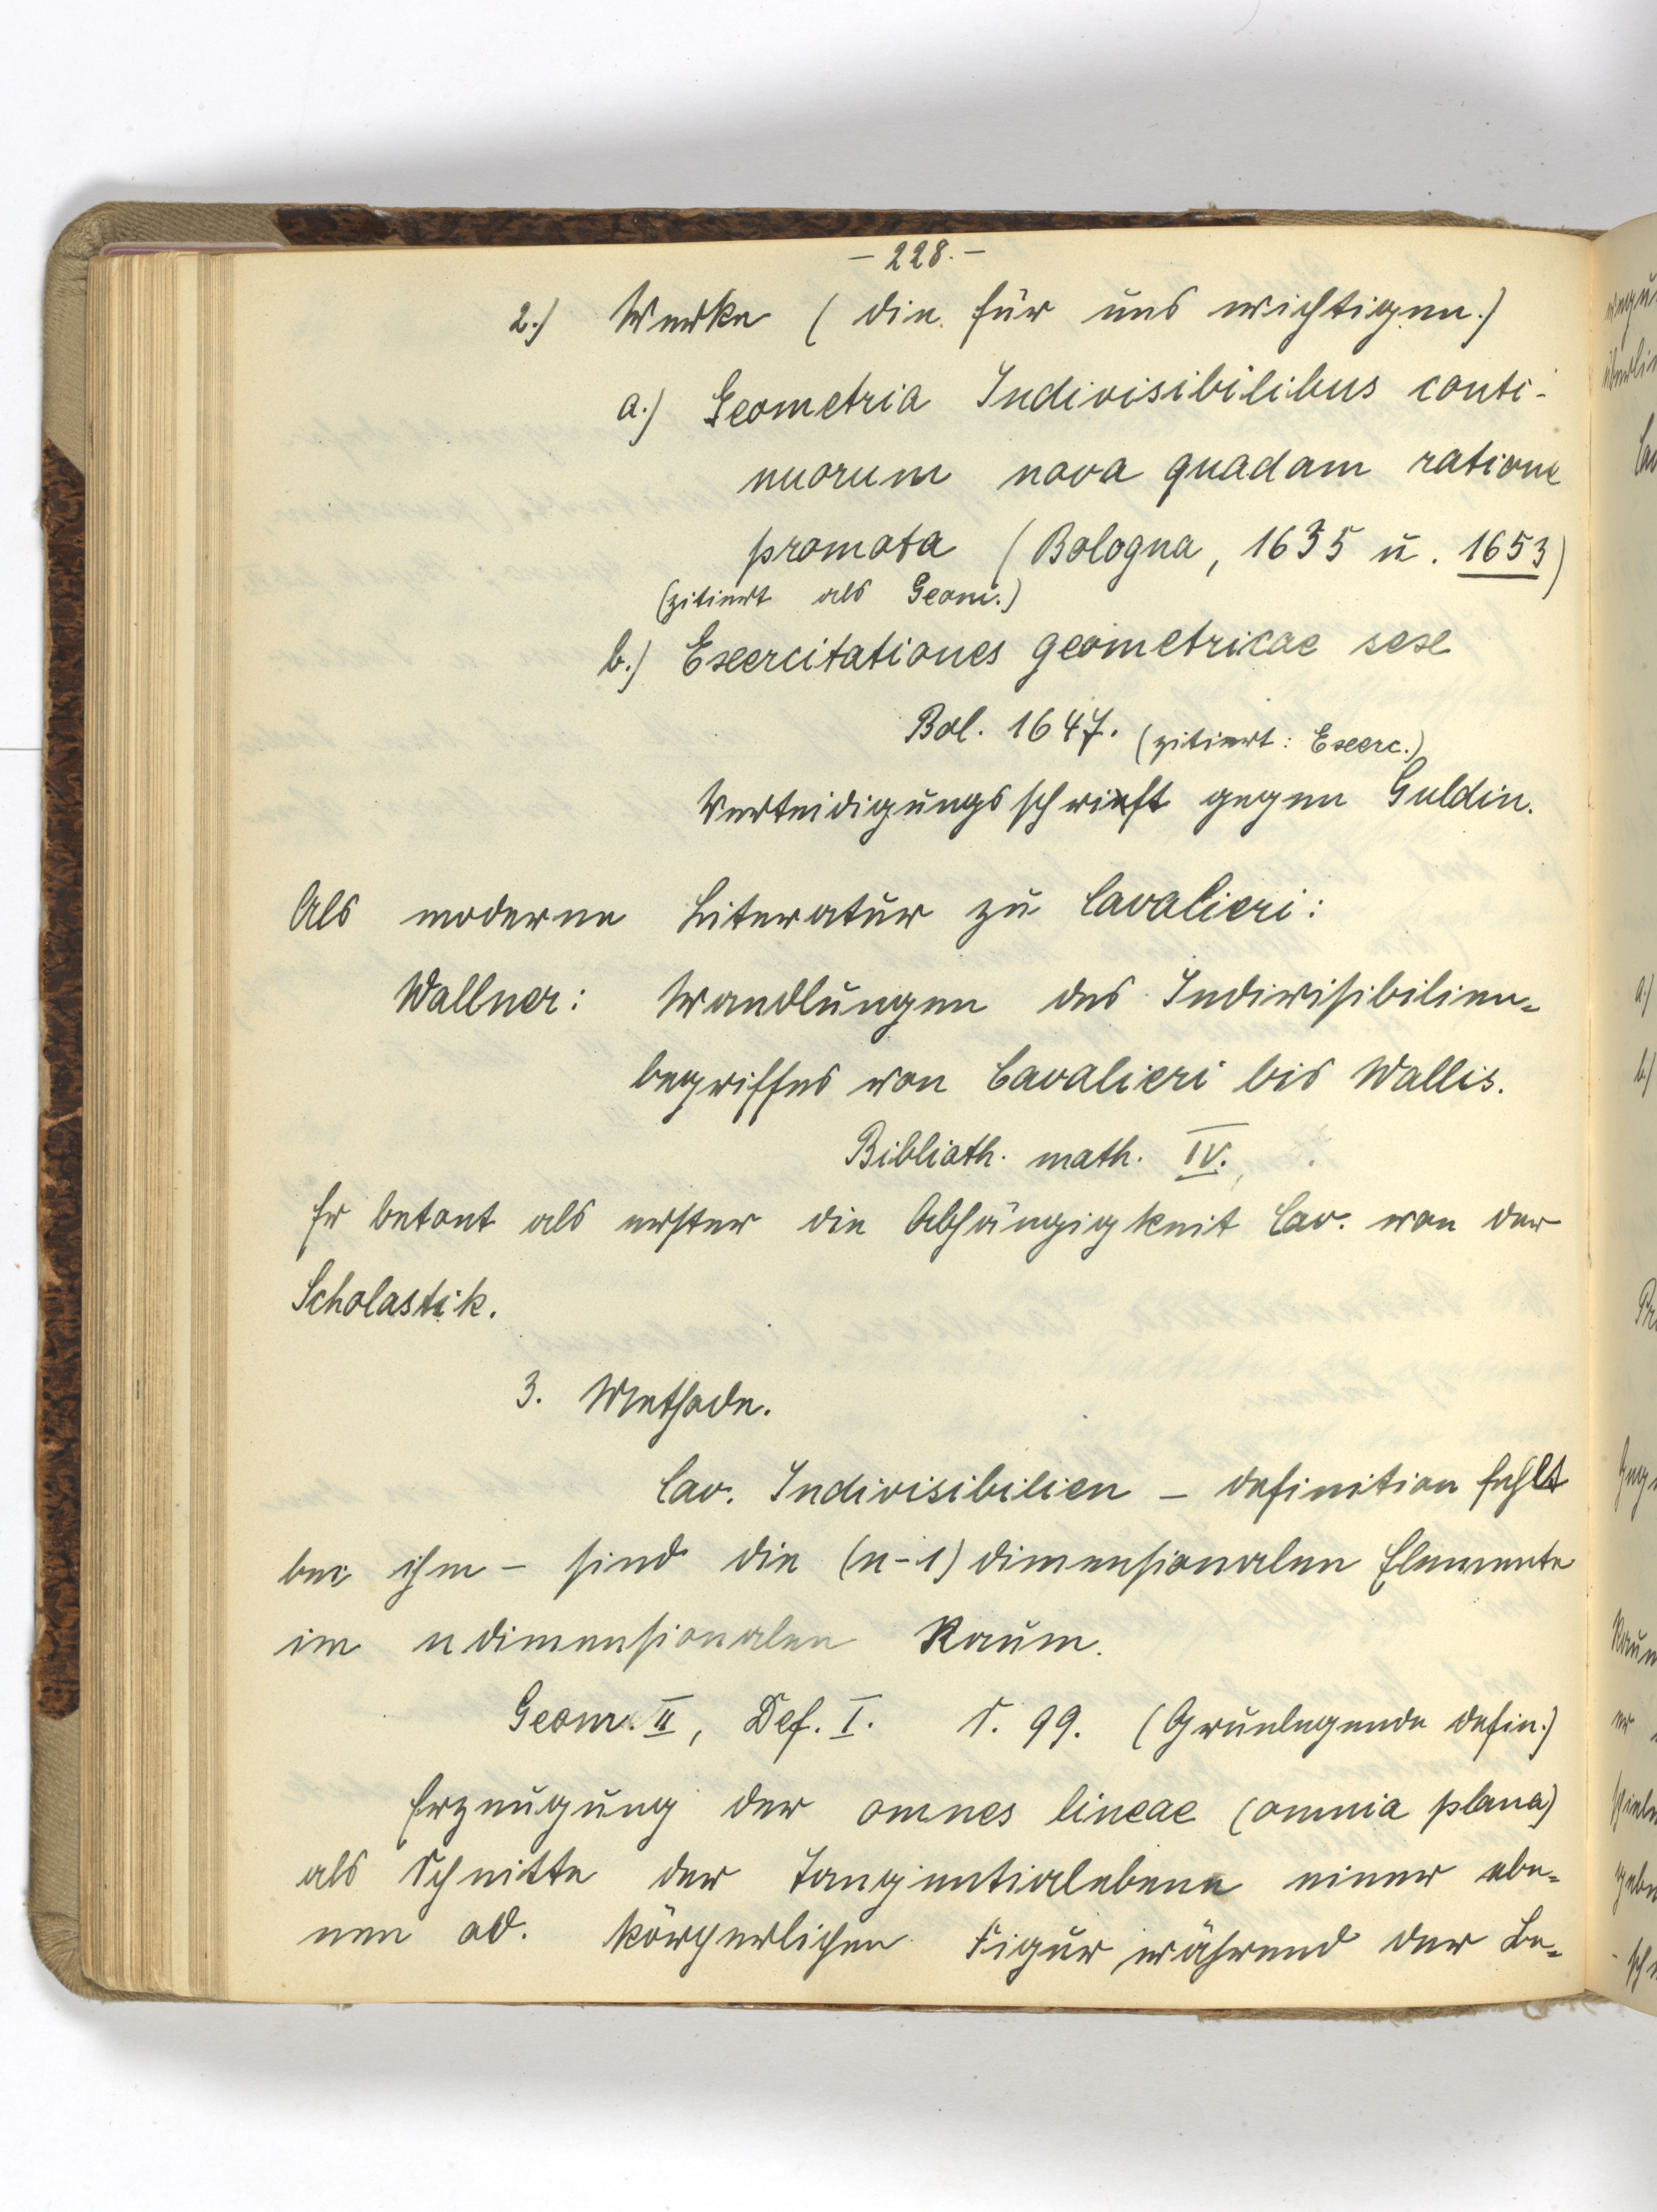 - 228. -
2.) Werke (die für uns wichtigen.)
a.) Geometria Indivisibilibus conti-
nuorum nova quadam ratione
promota (Bologna, 1635 u. 1653)
(zitiert als Geom.)
b.) Exercitationes geometricae sex
Bol. 1647. (zitiert: Exerc.)
Verteidigungsschrift gegen Guldin.
Als moderne Literatur zu Cavalieri:
Wallner: Wandlungen des Indivisibilien-
begriffes von Cavalieri bis Wallis.
Biblioth. math. IV.,
Er betont als erster die Abhängigkeit Cav. von der
Scholastik.
3. Methode.
Cav. Indivisibilien - definition fehlt
bei ihm - sind die (n-1) dimensionalen Elemente
im n dimensionalen Raum.
Geom. II, Def. I. S. 99. (Grunlegende Defin.)
Erzeugung der omnes lineae (omnia plana)
als Schnitte der Tangentialebene einer ebe-
nen od. körperlichen Figur während der Be-